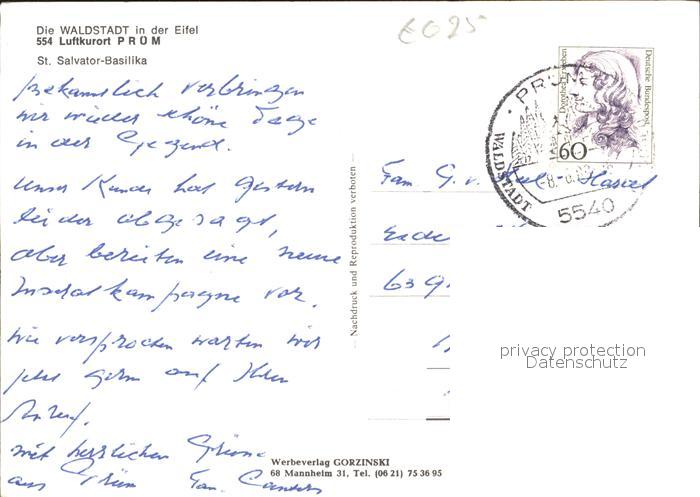 Die WALDSTADT in der Eifel
554 Luftkurort PRÜM
St. Salvator-Basilika
€025
Bekanntlich verbringen
wir wieder schöne Tage
in der Gegend.
Unser Kunde hat gestern
leider abgesagt,
aber bereiten eine neue
Inseratkampagne vor.
wie versprochen warten wir
jetzt gern auf Ihren
Anruf.
mit herzlichen Grüßen
aus Prüm Fam.
Nachdruck und Reproduktion verboten
Werbeverlag GORZINSKI
68 Mannheim 31, Tel. (06 21) 75 36 95
Deutsche Bundespost
60
PRÜM
WALDSTADT
5540
Fam G. v.
63 G.
privacy protection
Datenschutz